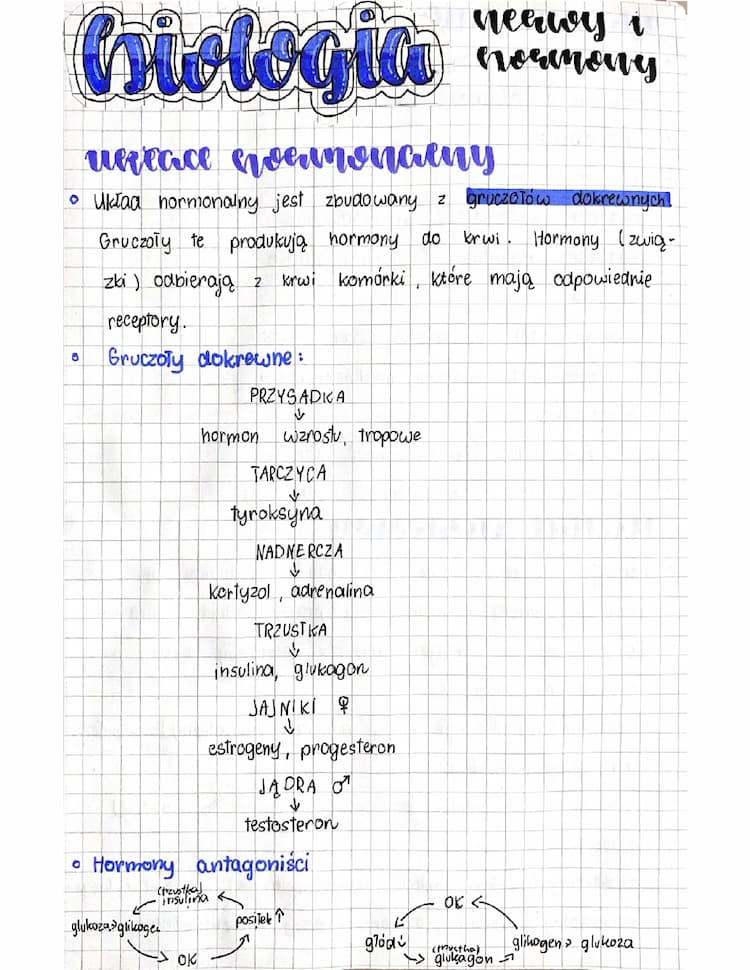 biologia
nerwy i
hormony
układ hormonalny
Układ hormonalny jest zbudowany z gruczołów dokrewnych
Gruczoły te produkują hormony do krwi. Hormony (zwią-
zki) odbierają z krwi komórki, które mają odpowiednie
receptory.
Gruczoły dokrewne:
PRZYSADKA
↓
hormon wzrostu, tropowe
TARCZYCA
↓
tyroksyna
NADNERCZA
↓
kortyzol, adrenalina
TRZUSTKA
↓
insulina, glukagon
JAJNIKI ♀
↓
estrogeny, progesteron
JĄDRA ♂
↓
testosteron
Hormony antagoniści
(trzustka)
insulina
posiłek ↑
glukoza > glikogen
OK
OK
głód ↓
(trzustka)
glukagon
glikogen > glukoza